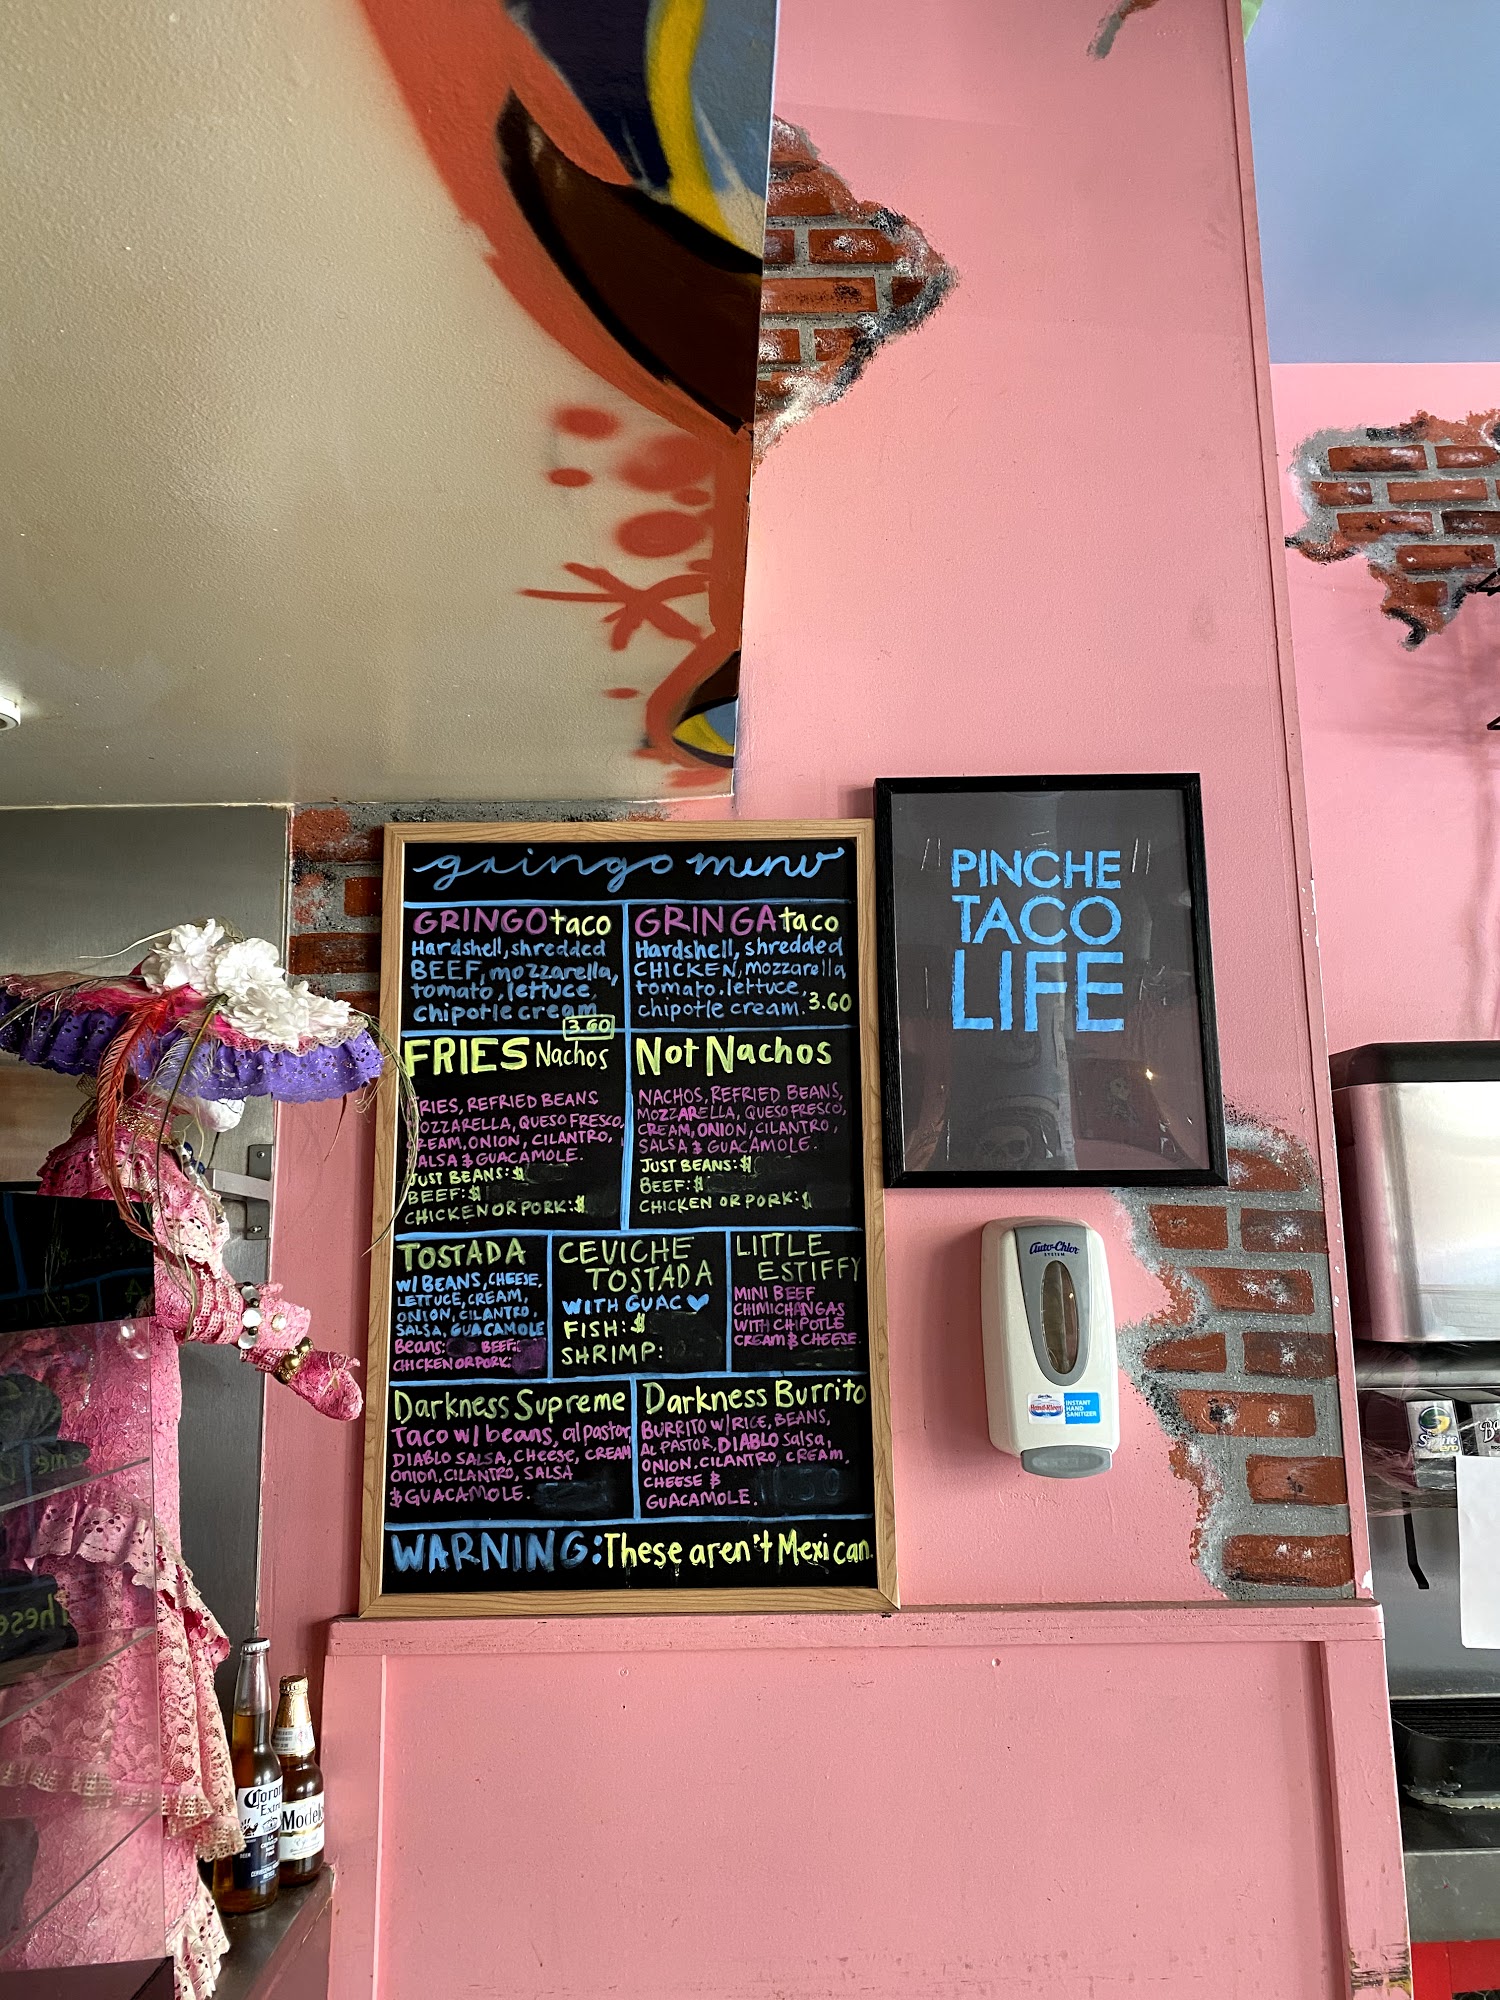 gringo menu
GRINGO taco
Hardshell, shredded
BEEF, mozzarella,
tomato, lettuce,
chipotle cream
3.60
GRINGA taco
Hardshell, shredded
CHICKEN, mozzarella,
tomato, lettuce,
chipotle cream. 3.60
FRIES Nachos
RIES, REFRIED BEANS
OZZARELLA, QUESO FRESCO,
REAM, ONION, CILANTRO,
ALSA & GUACAMOLE.
JUST BEANS: $
BEEF: $
CHICKEN OR PORK: $
Not Nachos
NACHOS, REFRIED BEANS,
MOZZARELLA, QUESO FRESCO,
CREAM, ONION, CILANTRO,
SALSA & GUACAMOLE.
JUST BEANS: $
BEEF: $
CHICKEN OR PORK: $
TOSTADA
W/ BEANS, CHEESE,
LETTUCE, CREAM,
ONION, CILANTRO,
SALSA, GUACAMOLE
Beans: BEEF:
CHICKEN OR PORK:
CEVICHE
TOSTADA
WITH GUAC
FISH: $
SHRIMP:
LITTLE
ESTIFFY
MINI BEEF
CHIMICHANGAS
WITH CHIPOTLE
CREAM & CHEESE.
Darkness Supreme
Taco w/ beans, al pastor,
DIABLO SALSA, Cheese, CREAM
Onion, CILANTRO, SALSA
& GUACAMOLE.
Darkness Burrito
BURRITO W/ RICE, BEANS,
AL PASTOR, DIABLO Salsa,
ONION. CILANTRO, CREAM.
CHEESE &
GUACAMOLE.
WARNING: These aren't Mexican.
PINCHE
TACO
LIFE
Auto-Chlor
SYSTEM
INSTANT
HAND
SANITIZER
Corona
Extra
Modelo